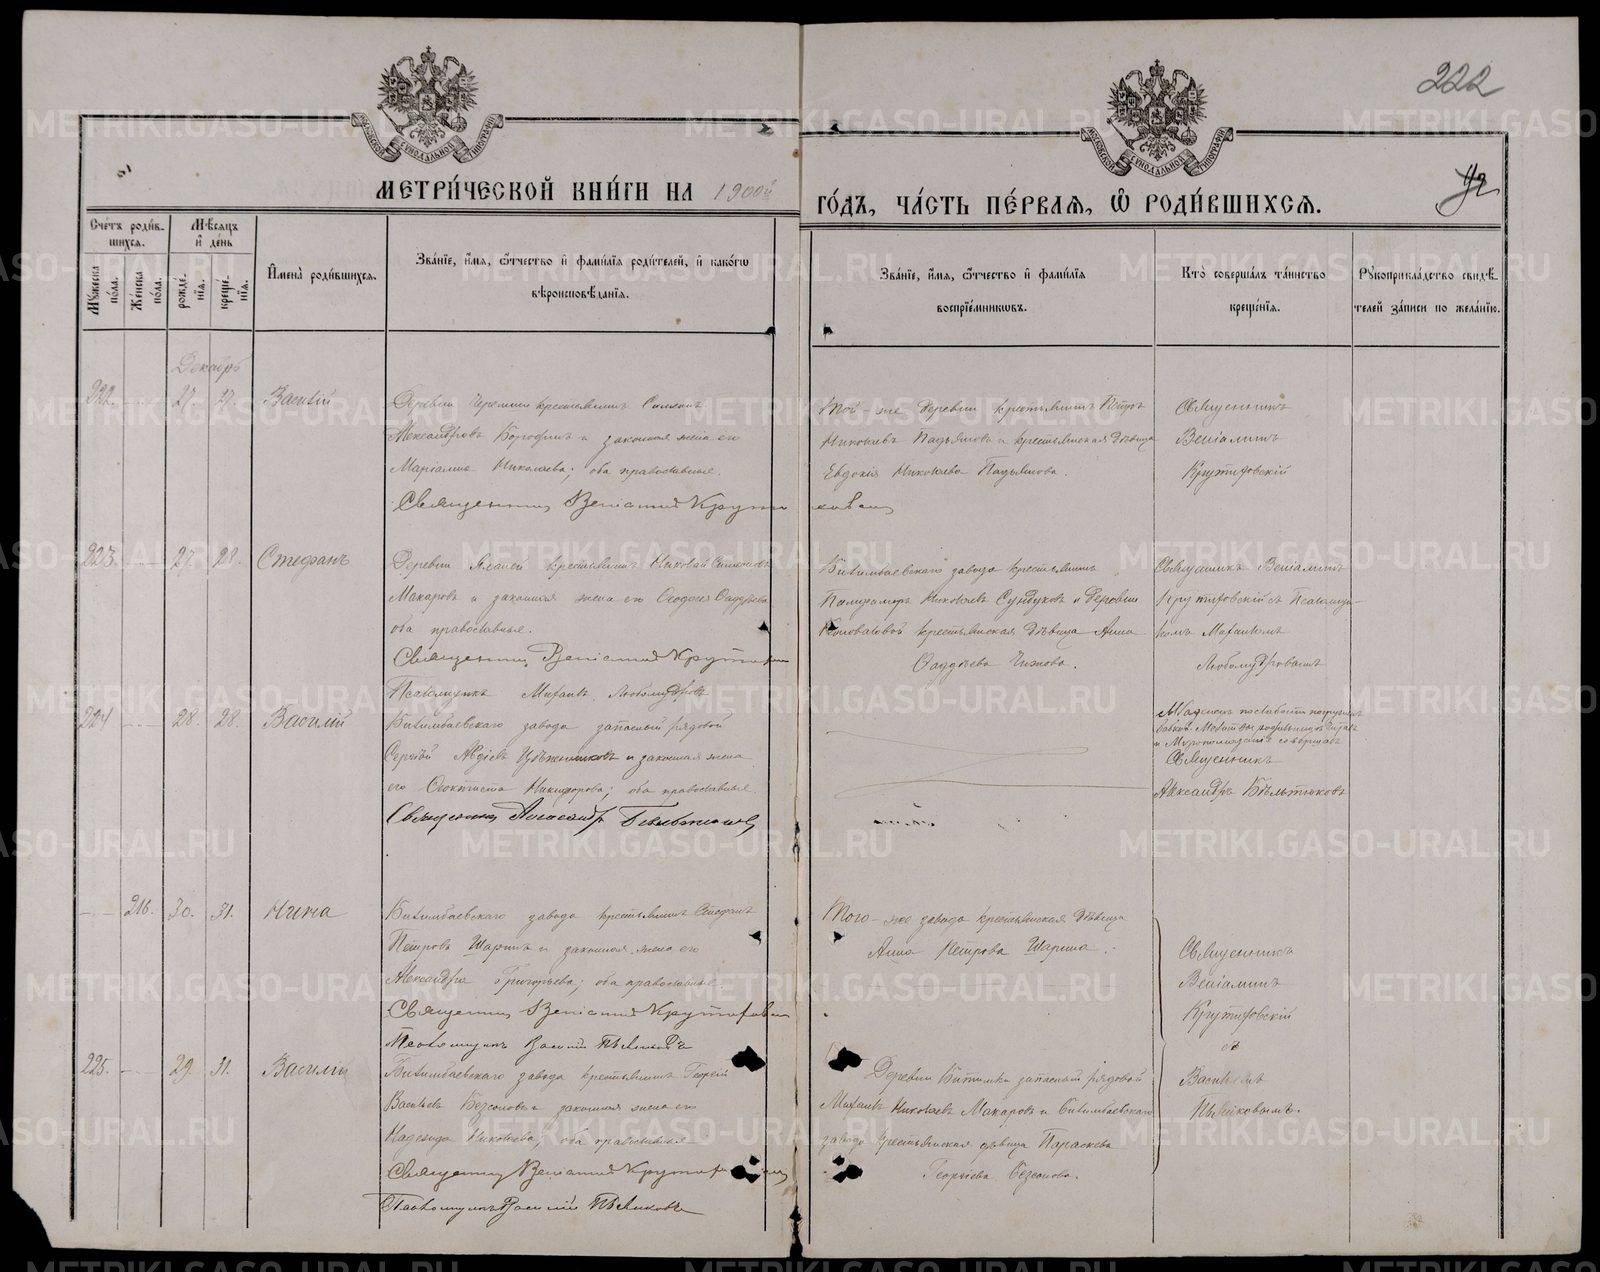 222
42
МОСКОВСКОЙ СѴНОДАЛЬНОЙ ТИПОГРАФІИ
МОСКОВСКОЙ СѴНОДАЛЬНОЙ ТИПОГРАФІИ
МЕТРИ́ЧЕСКОЙ КНИ́ГИ НА 1900й
ГО́ДЪ, ЧА́СТЬ ПЕ́РВАЯ, Ѡ҆ РОДИ́ВШИХСЯ.
Сче́тъ роди́в-
шихся.
Му́жеска по́ла.
Же́нска по́ла.
Мѣ́сяцъ
и҆ де́нь
рожде́-
нїя.
креще́-
нїя.
И҆мена̀ роди́вшихся.
Зва́нїе, и҆́мя, ѻ҆́тчество и҆ фами́лїя роди́телей, и҆ како́гѡ
вѣроисповѣ́данїя.
Зва́нїе, и҆́мя, ѻ҆́тчество и҆ фами́лїя
воспрїе́мникѡвъ.
Кто̀ соверша́лъ та́инство
креще́нїя.
Рꙋкоприкла́дство свидѣ́-
телей за́писи по жела́нїю.
Декабрь
222. 27. 27. Василій
Деревни крестьянинъ Симеонъ
Александровъ и законная жена его
Маріамна Николаева; оба православные.
Священникъ Веніаминъ Крутиховскій
Той-же деревни крестьянинъ Петръ
Николаевъ Падьянова и крестьянская дѣвица
Евдокія Николаева Падьянова.
Священникъ
Веніаминъ
Крутиховскій
223. 27. 28. Стефанъ
Деревни крестьянинъ Николай Симеоновъ
Макаровъ и законная жена его Ѳеодосія Ѳаддѣева
оба православные.
Священникъ Веніаминъ Крутиховскій
Псаломщикъ Михаилъ Любомудровъ
Билимбаевскаго завода крестьянинъ
Николаевъ Сундуковъ и деревни
Коноваловой крестьянская дѣвица Анна
Ѳаддѣева Чижова.
Священникъ Веніаминъ
Крутиховскій съ Псаломщи-
комъ Михаиломъ
Любомудровымъ
224 28. 28. Василій
Билимбаевскаго завода запасный рядовой
Сергѣй и законная жена
его Ѳеоктиста Никифорова; оба православные.
Священникъ Александръ Бѣльтюковъ
и Муропомазаніе совершалъ
Священникъ
Александръ Бѣльтюковъ
216. 30. 31. Нина
Билимбаевскаго завода крестьянинъ Стефанъ
Петровъ Шаринъ и законная жена его
Александра Григорьева; оба православные.
Священникъ Веніаминъ Крутиховскій
Псаломщикъ Василій Пьянковъ
Того-же завода крестьянская дѣвица
Анна Петрова Шарина.
Священникъ
Веніаминъ
Крутиховскій
съ
Василіемъ
Пьянковымъ.
225. 29. 31. Василій
Билимбаевскаго завода крестьянинъ Георгій
Васильевъ Безсоновъ и законная жена его
Надежда Николаева; оба православные
Священникъ Веніаминъ Крутиховскій
Псаломщикъ Василій Пьянковъ
Деревни Битимки запасный рядовой
Михаилъ Николаевъ Макаровъ и Билимбаевскаго
завода крестьянская дѣвица Параскева
Георгіева Безсонова.
METRIKI.GASO-URAL.RU